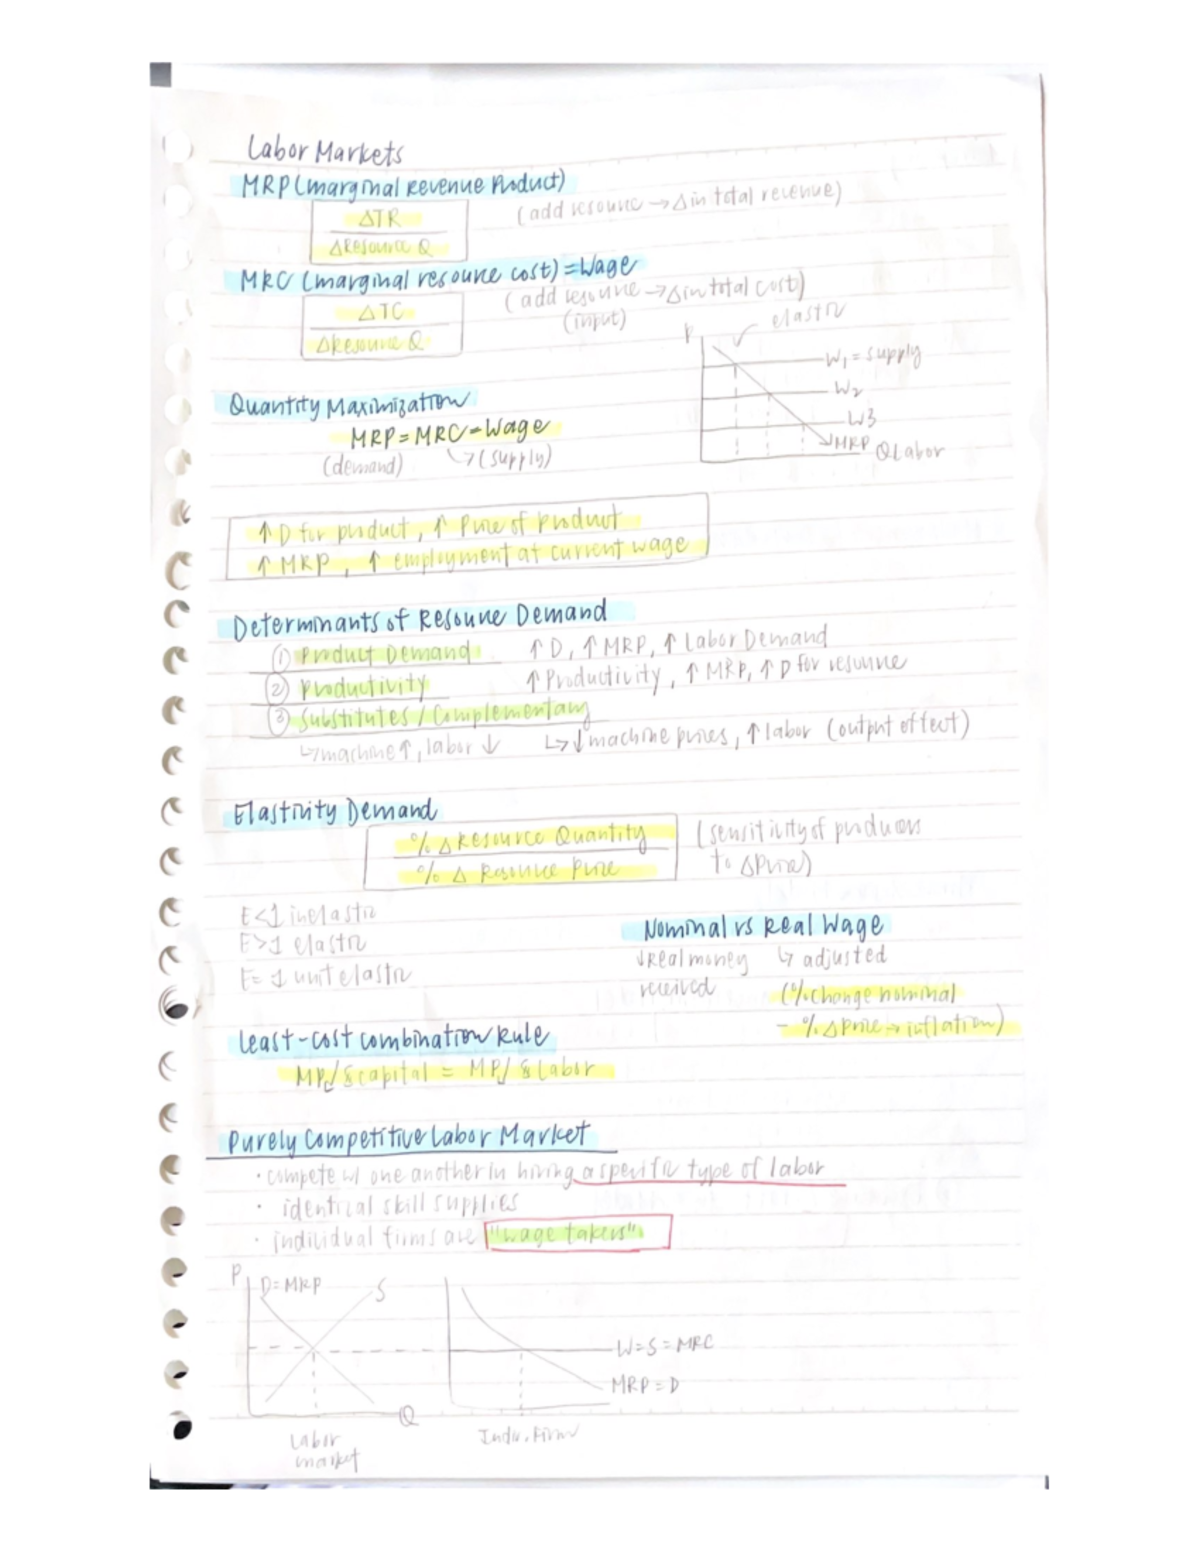 Labor Markets
MRP (marginal Revenue Product)
ΔTR
ΔResource Q
(add resource → Δ in total revenue)
MRC (marginal resource cost) = Wage
ΔTC
ΔResource Q
(add resource → Δ in total cost)
(input)
P
elastic
W₁ = supply
W₂
W3
MRP
Q Labor
Quantity Maximization
MRP = MRC = Wage
(demand) ↳ (supply)
↑ D for product, ↑ Price of product
↑ MRP, ↑ employment at current wage
Determinants of Resource Demand
① Product Demand ↑ D, ↑ MRP, ↑ Labor Demand
② Productivity ↑ Productivity, ↑ MRP, ↑ D for resource
③ Substitutes / Complementary
↳ machine ↑, labor ↓ ↳ ↓ machine prices, ↑ labor (output effect)
Elasticity Demand
% Δ Resource Quantity
% Δ Resource Price
(sensitivity of producers
to Δ Price)
E < 1 inelastic
E > 1 elastic
E = 1 unit elastic
Nominal vs Real Wage
↓ Real money
received
↳ adjusted
(% change nominal
- % Δ price → inflation)
Least-cost combination Rule
MP/$ capital = MP/$ Labor
Purely Competitive Labor Market
• compete w/ one another in hiring a specific type of labor
• identical skill supplies
• individual firms are "wage takers"
P
D = MRP
S
Q
Labor
market
W = S = MRC
MRP = D
Indiv. Firm